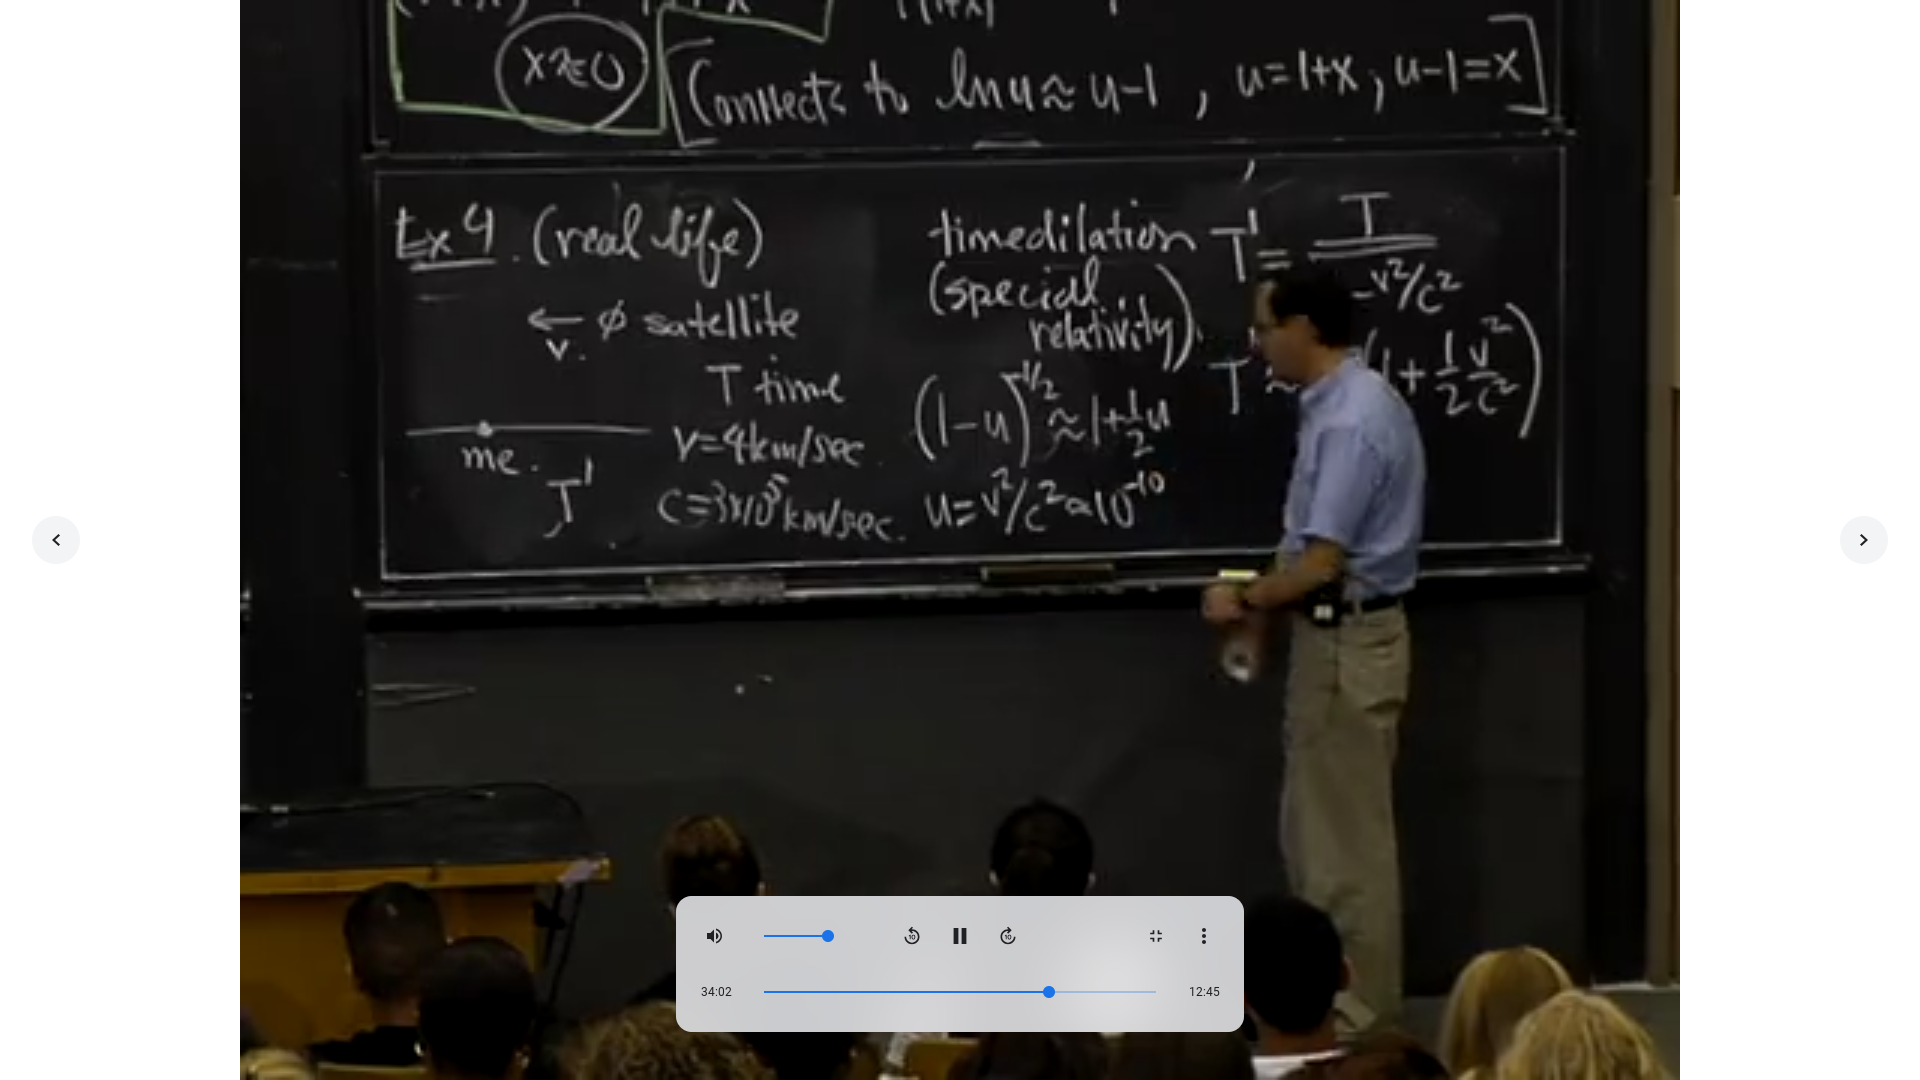 x ≈ 0
[Connects to ln u ≈ u-1 , u=1+x ; u-1=x]
Ex 4. (real life)
← φ satellite
v.
T time
me.
T'
v=4km/sec
c=3x10⁵km/sec.
timedilation
(special
relativity).
T' = T
-v²/c²
T' ≈ (1+ 1/2 v²/c²)
(1-u)^-1/2 ≈ 1+ 1/2 u
u=v²/c² ≈ 10⁻¹⁰
10
10
34:02
12:45